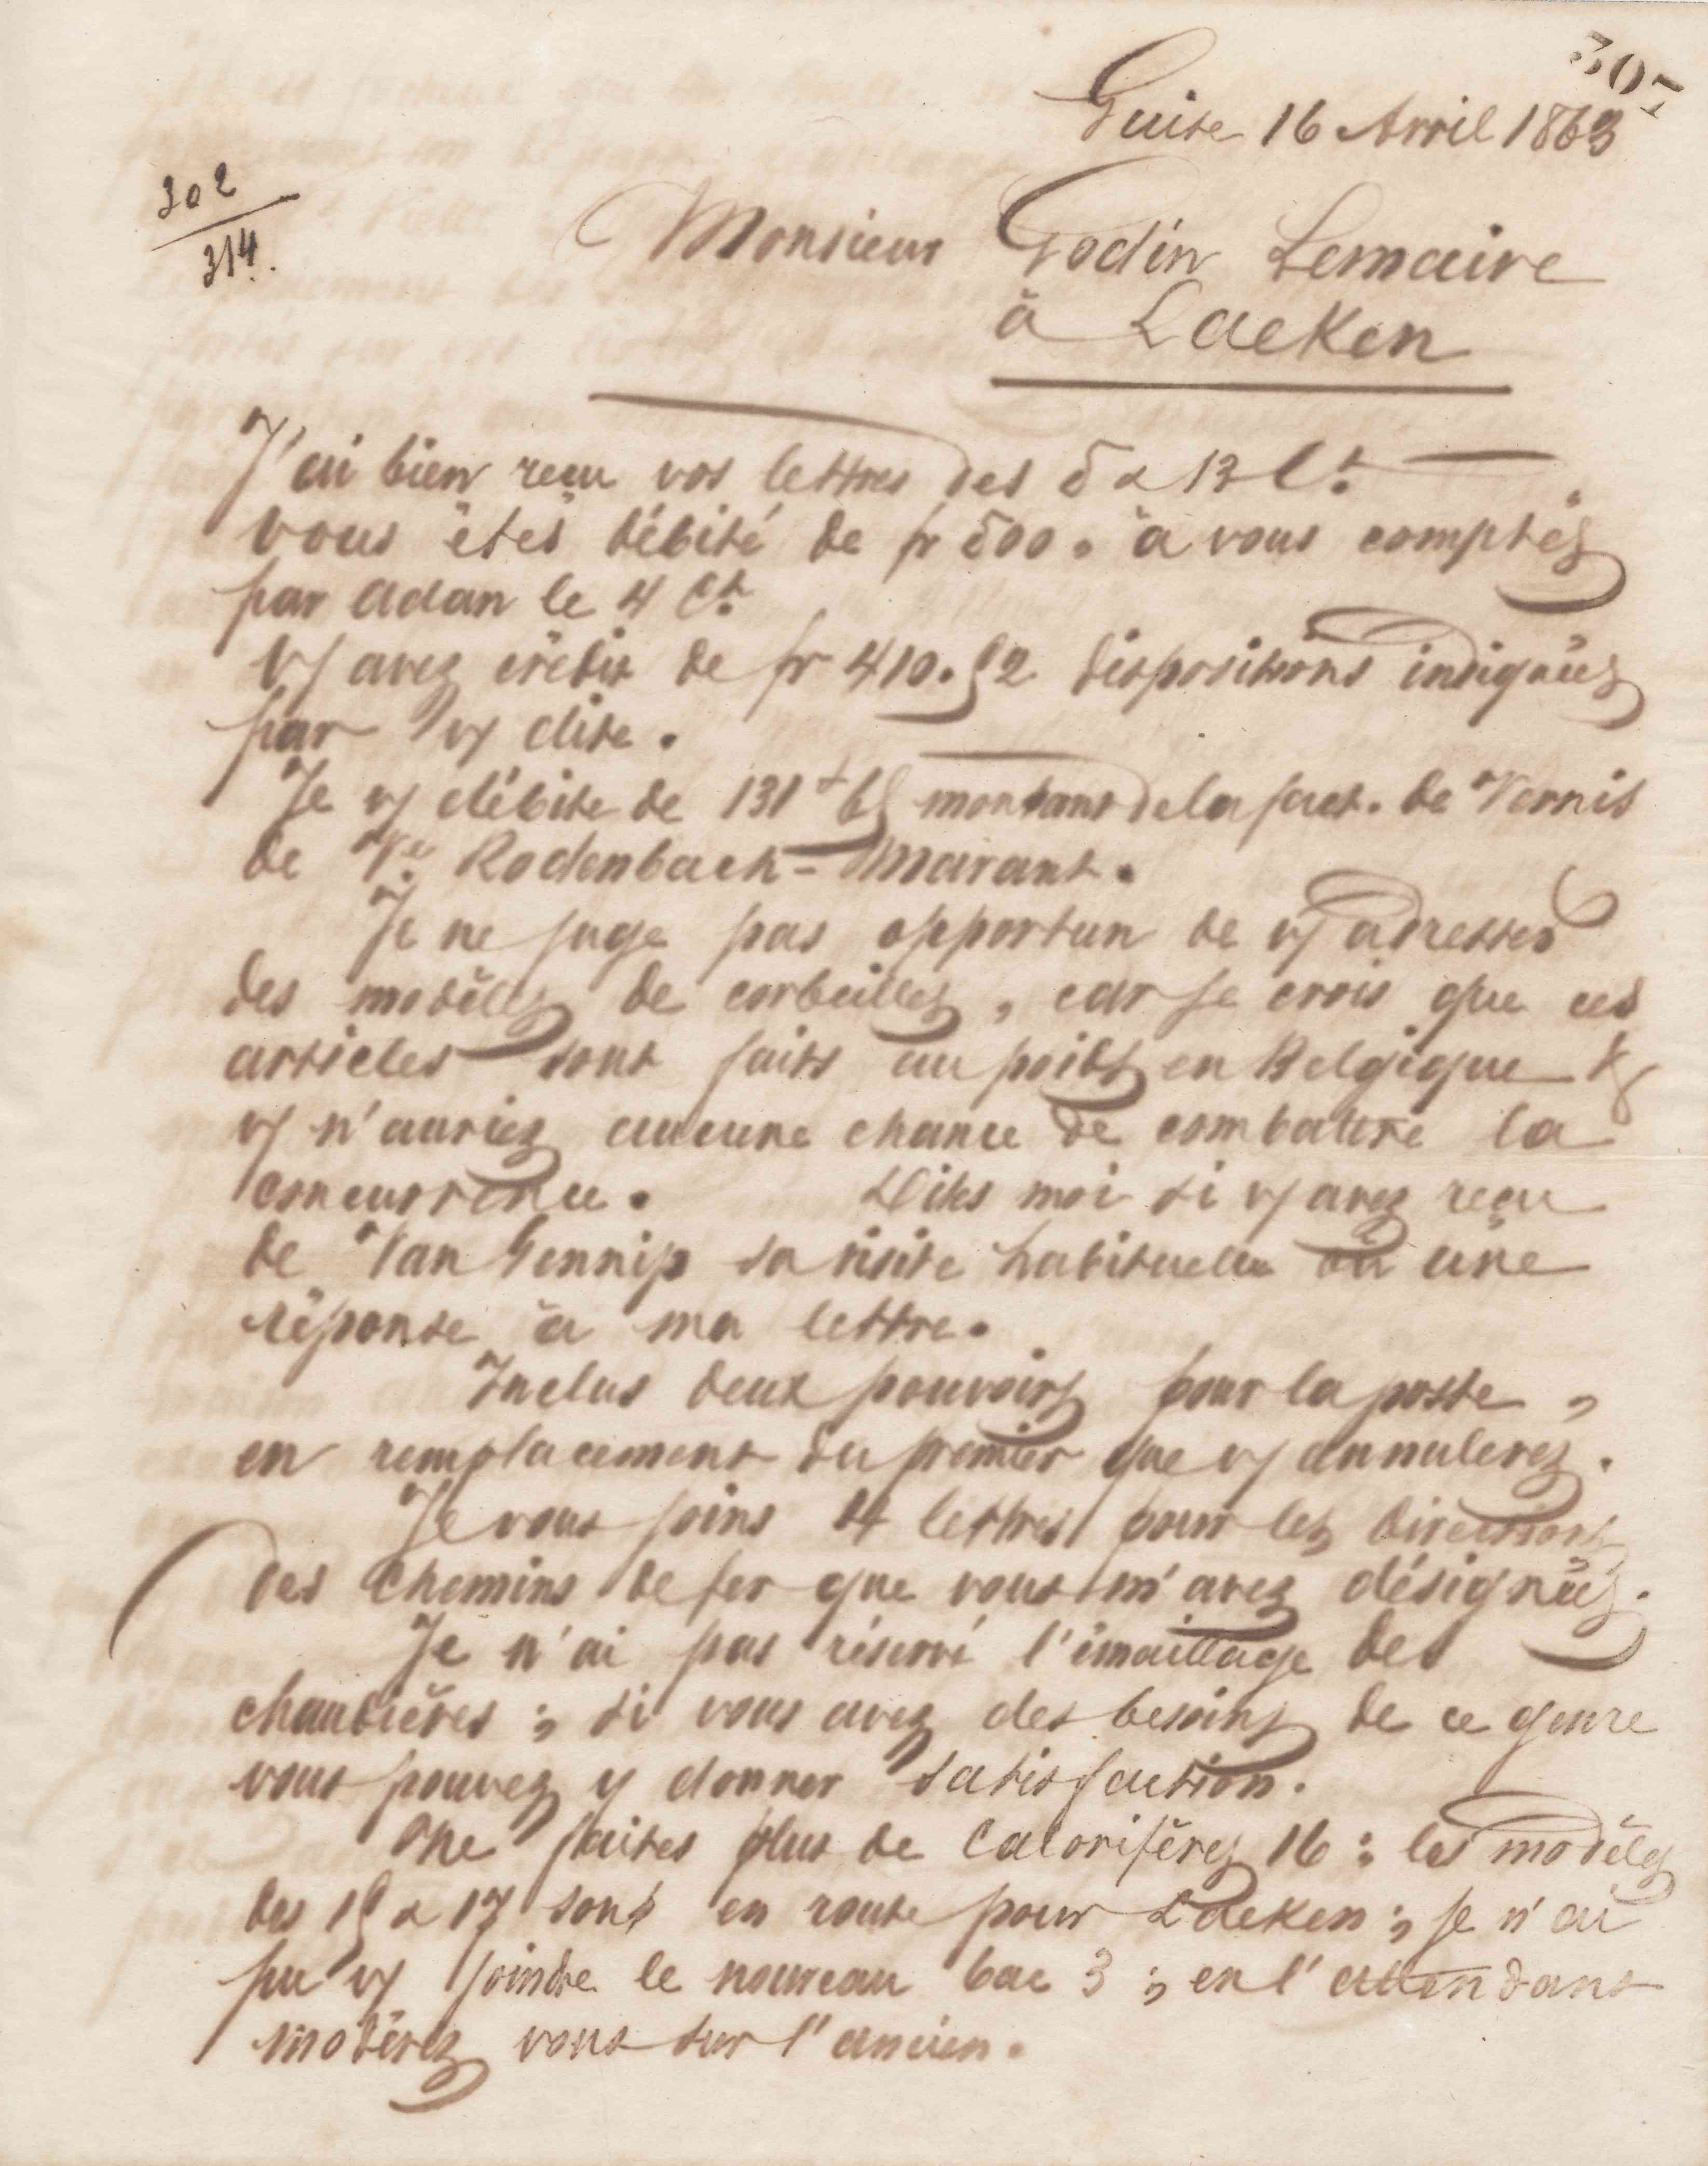 307
Guise 16 Avril 1863
302
314.
Monsieur Godin Lemaire
à Laeken
J'ai bien reçu vos lettres des 5 & 13 Ct.
Vous êtes débité de fr 500 " à vous comptés
par Adan le 4 Ct
Vs avez crédit de fr 410.52 dispositions indiquées
par vs dite.
Je vs débite de 131 f 65 montant de la fact. de Vernis
de Ve Rodenbach-Marant.
Je ne juge pas opportun de vs adresser
des modèles de corbeilles, car je crois que ces
articles sont faits au poids en Belgique &
vs n'auriez aucune chance de combattre la
concurrence. Dites moi si vs avez reçu
de Van Gennip sa visite habituelle ou une
réponse à ma lettre.
Inclus deux pouvoirs pour la poste,
en remplacement du premier que vs annulerez.
Je vous joins 4 lettres pour les directions
des chemins de fer que vous m'avez désignées.
Je n'ai pas réservé l'émaillage des
chaudières ; si vous avez des besoins de ce genre
vous pouvez y donner satisfaction.
Ne faites plus de Calorifères 16 : les modèles
des 15 & 17 sont en route pour Laeken ; je n'ai
pu vs joindre le nouveau bac 3 ; en l'attendant
modérez vous sur l'ancien.